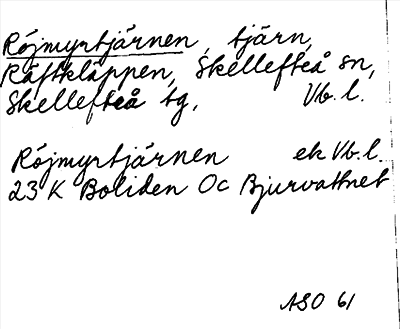 Röjmyrtjärnen, tjärn,
Råftkläppen, Skellefteå sn,
Skellefteå tg, Vb. l.
Röjmyrtjärnen ek Vb. l.
23 K Boliden Oc Bjurvattnet
ASO 61